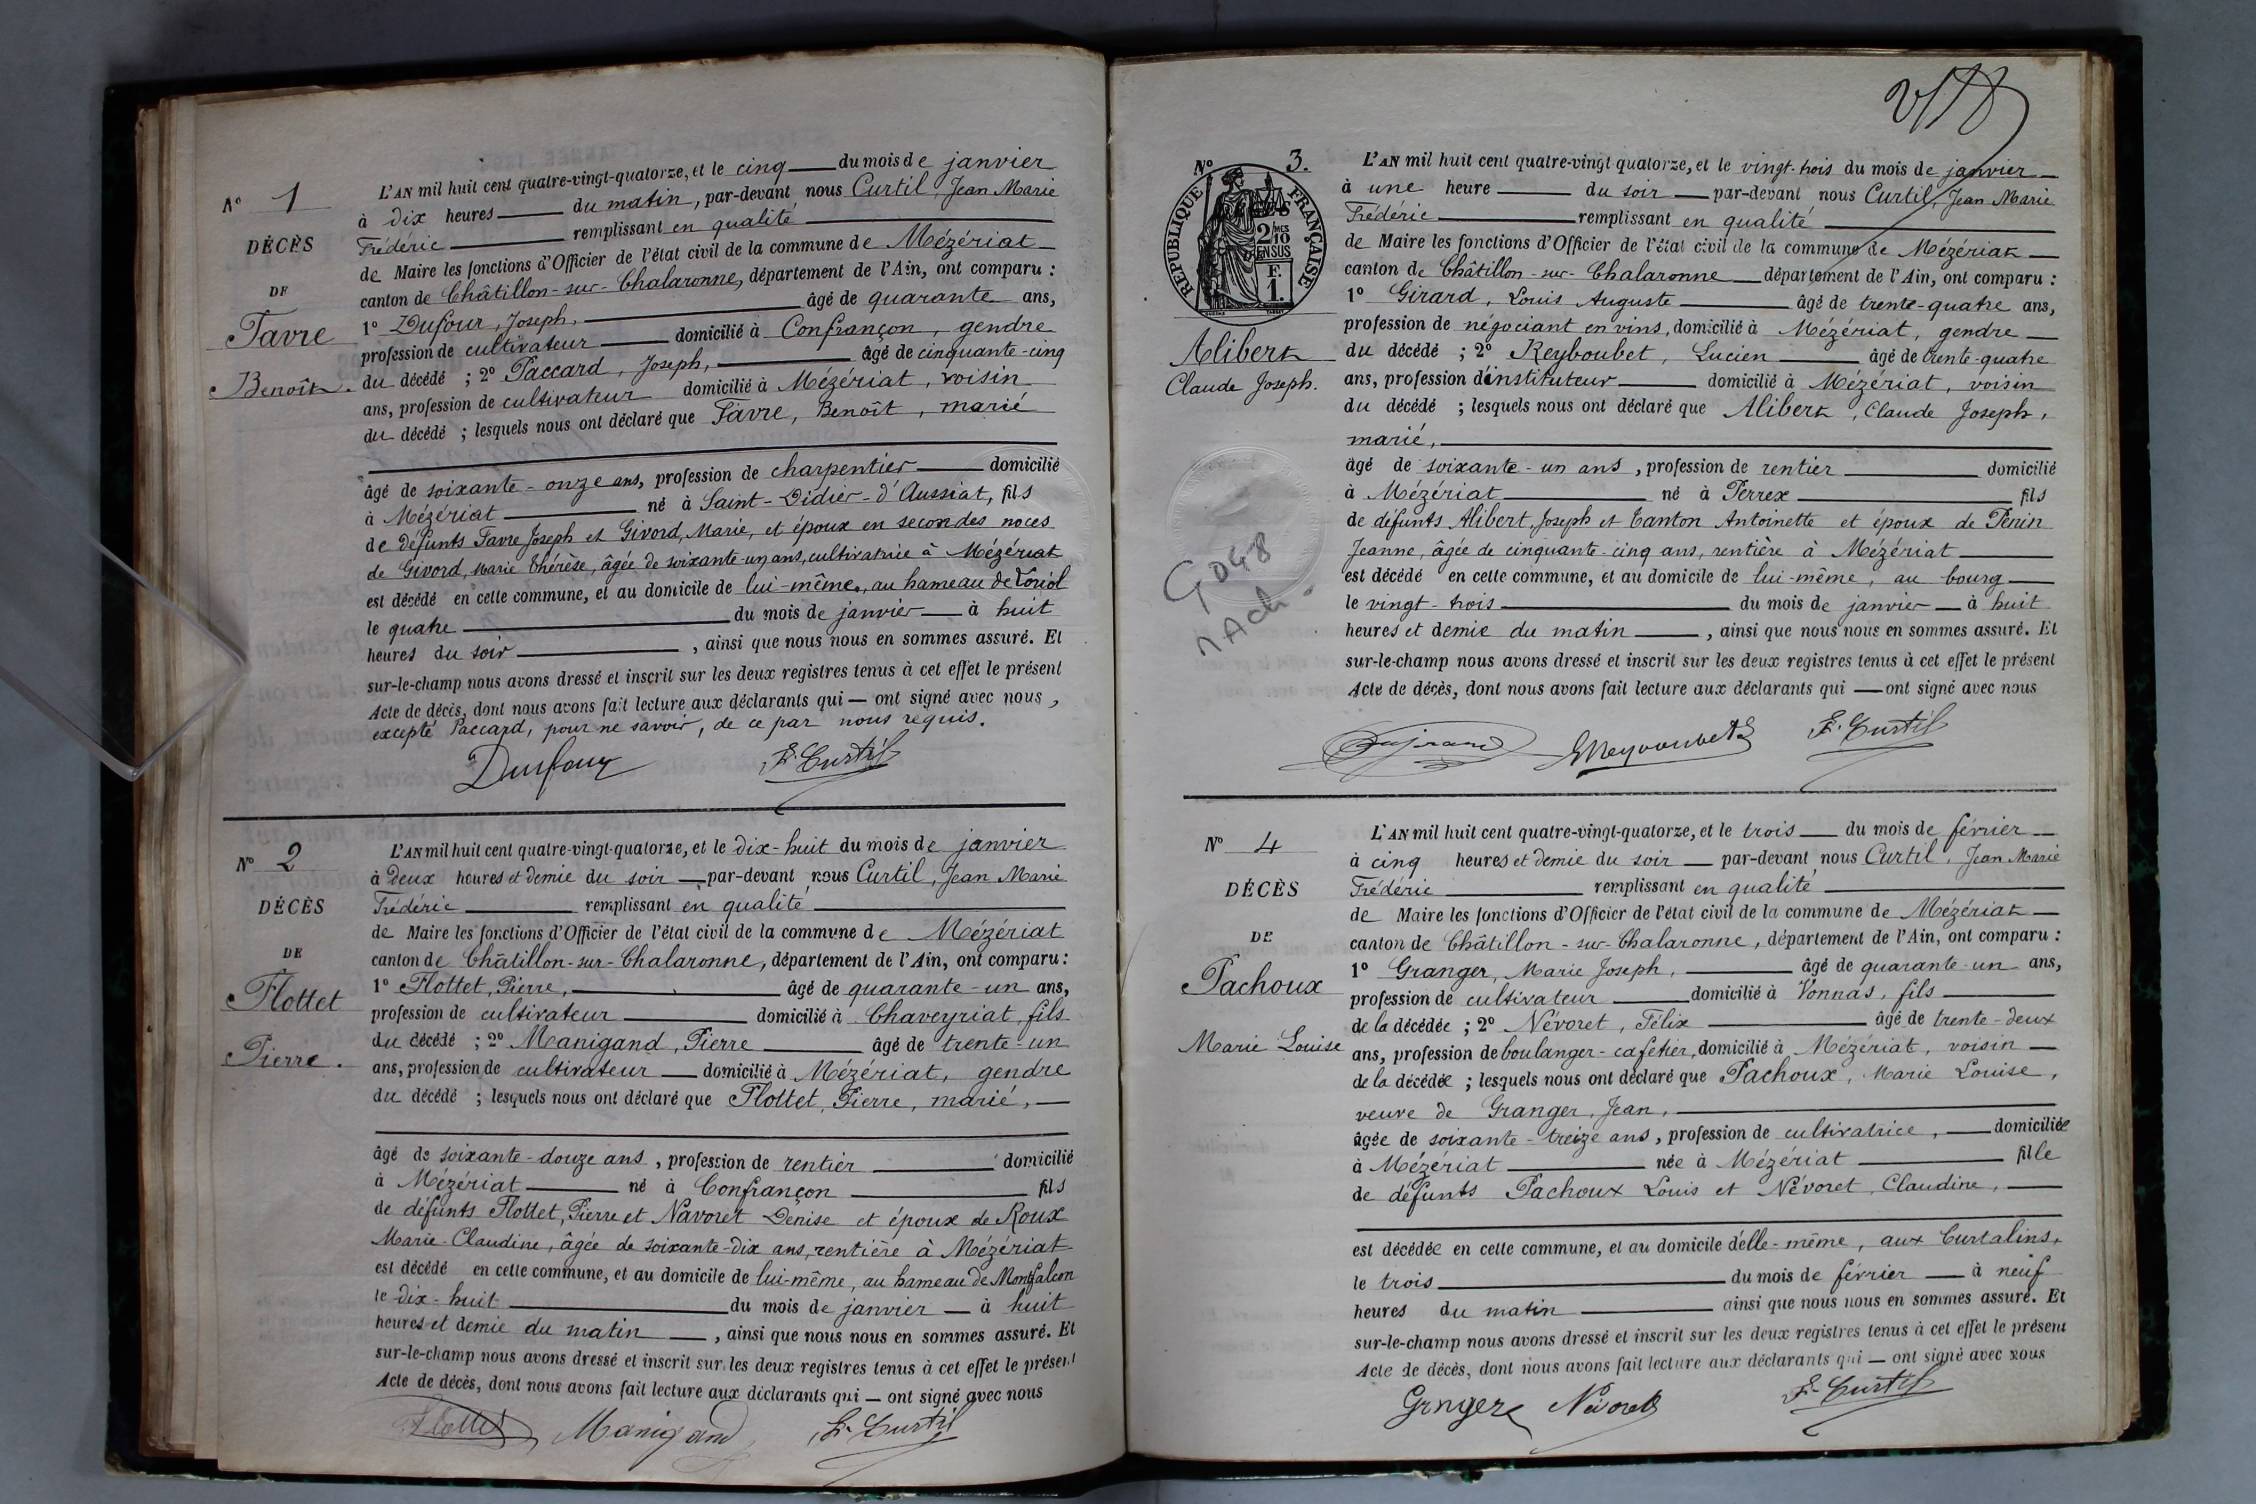 N° 1
DÉCÈS
DE
Favre
Benoît.
L'AN mil huit cent quatre-vingt-quatorze, et le cinq du mois de janvier
à dix heures du matin, par-devant nous Curtil, Jean Marie
Frédéric remplissant en qualité
de Maire les fonctions d'Officier de l'état civil de la commune de Mézériat
canton de Châtillon-sur-Chalaronne, département de l'Ain, ont comparu :
1° Dufour, Joseph, âgé de quarante ans,
profession de cultivateur domicilié à Confrançon, gendre
du décédé ; 2° Paccard, Joseph, âgé de cinquante-cinq
ans, profession de cultivateur domicilié à Mézériat, voisin
du décédé ; lesquels nous ont déclaré que Favre, Benoît, marié
âgé de soixante-onze ans, profession de charpentier domicilié
à Mézériat né à Saint-Didier-d'Aussiat, fils
de défunts Favre Joseph et Givord, Marie, et époux en secondes noces
de Givord, Marie Thérèse, âgée de soixante-un ans, cultivatrice à Mézériat
est décédé en cette commune, et au domicile de lui-même, au hameau de Loriol
le quatre du mois de janvier à huit
heures du soir, ainsi que nous nous en sommes assuré. Et
sur-le-champ nous avons dressé et inscrit sur les deux registres tenus à cet effet le présent
Acte de décès, dont nous avons fait lecture aux déclarants qui — ont signé avec nous,
excepté Paccard, pour ne savoir, de ce par nous requis.
Dufour F. Curtil
N° 2
DÉCÈS
DE
Flottet
Pierre.
L'AN mil huit cent quatre-vingt-quatorze, et le dix-huit du mois de janvier
à deux heures et demie du soir par-devant nous Curtil, Jean Marie
Frédéric remplissant en qualité
de Maire les fonctions d'Officier de l'état civil de la commune de Mézériat
canton de Châtillon-sur-Chalaronne, département de l'Ain, ont comparu :
1° Flottet, Pierre, âgé de quarante-un ans,
profession de cultivateur domicilié à Chaveyriat, fils
du décédé ; 2° Manigand, Pierre âgé de trente-un
ans, profession de cultivateur domicilié à Mézériat, gendre
du décédé ; lesquels nous ont déclaré que Flottet, Pierre, marié,
âgé de soixante-douze ans, profession de rentier domicilié
à Mézériat né à Confrançon fils
de défunts Flottet, Pierre et Navoret Denise et époux de Roux
Marie-Claudine, âgée de soixante-dix ans, rentière à Mézériat
est décédé en cette commune, et au domicile de lui-même, au hameau de Montfalcon
le dix-huit du mois de janvier à huit
heures et demie du matin, ainsi que nous nous en sommes assuré. Et
sur-le-champ nous avons dressé et inscrit sur les deux registres tenus à cet effet le présent
Acte de décès, dont nous avons fait lecture aux déclarants qui — ont signé avec nous
Flottet Manigand F. Curtil
N° 3.
RÉPUBLIQUE FRANÇAISE
2/10 EN SUS
F.
1.
Alibert
Claude Joseph.
L'AN mil huit cent quatre-vingt quatorze, et le vingt-trois du mois de janvier
à une heure du soir par-devant nous Curtil, Jean Marie
Frédéric remplissant en qualité
de Maire les fonctions d'Officier de l'état civil de la commune de Mézériat
canton de Châtillon-sur-Chalaronne département de l'Ain, ont comparu :
1° Girard, Louis Auguste âgé de trente-quatre ans,
profession de négociant en vins, domicilié à Mézériat, gendre
du décédé ; 2° Reyboubet, Lucien âgé de trente-quatre
ans, profession d'instituteur domicilié à Mézériat, voisin
du décédé ; lesquels nous ont déclaré que Alibert, Claude Joseph,
marié,
âgé de soixante-un ans, profession de rentier domicilié
à Mézériat né à Perrex fils
de défunts Alibert, Joseph et Tanton Antoinette et époux de Penin
Jeanne, âgée de cinquante-cinq ans, rentière à Mézériat
est décédé en cette commune, et au domicile de lui-même, au bourg
le vingt-trois du mois de janvier à huit
heures et demie du matin, ainsi que nous nous en sommes assuré. Et
sur-le-champ nous avons dressé et inscrit sur les deux registres tenus à cet effet le présent
Acte de décès, dont nous avons fait lecture aux déclarants qui — ont signé avec nous
F. Curtil
N° 4
DÉCÈS
DE
Pachoux
Marie Louise
L'AN mil huit cent quatre-vingt-quatorze, et le trois du mois de février
à cinq heures et demie du soir par-devant nous Curtil, Jean Marie
Frédéric remplissant en qualité
de Maire les fonctions d'Officier de l'état civil de la commune de Mézériat
canton de Châtillon-sur-Chalaronne, département de l'Ain, ont comparu :
1° Granger, Marie Joseph, âgé de quarante-un ans,
profession de cultivateur domicilié à Vonnas, fils
de la décédée ; 2° Névoret, Félix âgé de trente-deux
ans, profession de boulanger-cafetier, domicilié à Mézériat, voisin
de la décédée ; lesquels nous ont déclaré que Pachoux, Marie Louise,
veuve de Granger, Jean,
âgée de soixante-treize ans, profession de cultivatrice, domiciliée
à Mézériat née à Mézériat fille
de défunts Pachoux Louis et Névoret, Claudine,
est décédée en cette commune, et au domicile d'elle-même, aux Curtalins,
le trois du mois de février à neuf
heures du matin ainsi que nous nous en sommes assuré. Et
sur-le-champ nous avons dressé et inscrit sur les deux registres tenus à cet effet le présent
Acte de décès, dont nous avons fait lecture aux déclarants qui — ont signé avec nous
Granger Névoret F. Curtil